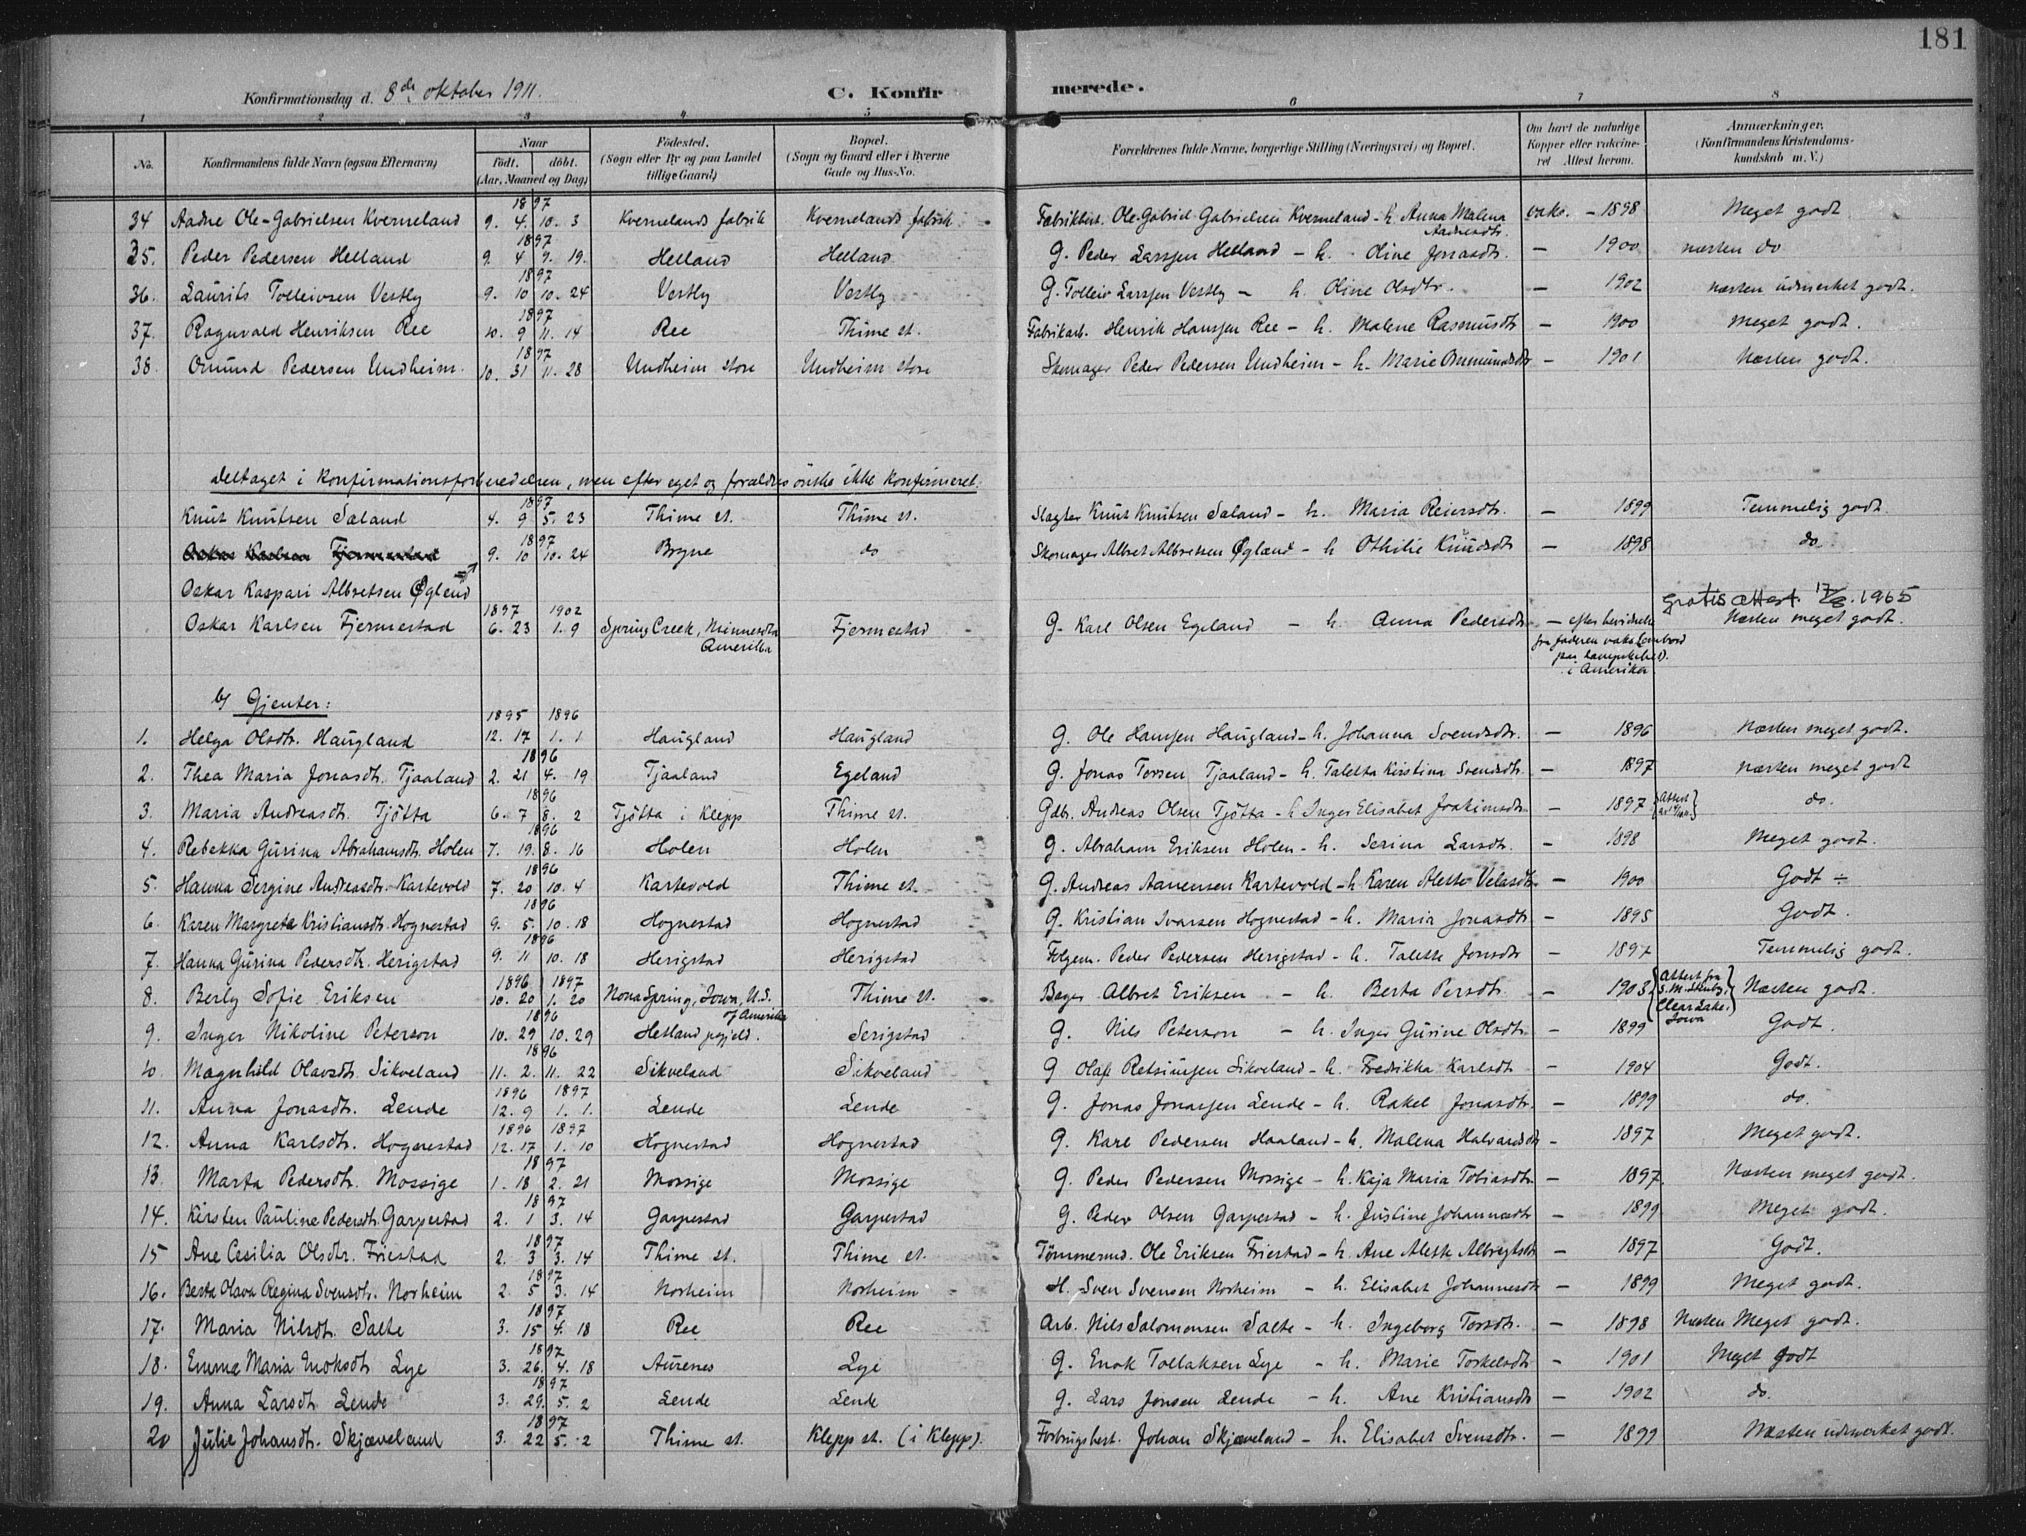 181
Konfirmationsdag d. 8de oktober 1911. C. Konfirmerede.
1 2 3 4 5 6 7 8
No. Konfirmandens fulde Navn (ogsaa Efternavn) Naar født. døbt. (Aar, Maaned og Dag) Fødested. (Sogn eller By og paa Landet tillige Gaard) Bopæl. (Sogn og Gaard eller i Byerne Gade og Hus-No. Forældrenes fulde Navne, borgerlige Stilling (Næringsvei) og Bopæl. Om havt de naturlige Kopper eller vakcineret Attest herom. Anmærkninger. (Konfirmandens Kristendomskundskab m. V.)
1897
34 Aadne Ole-Gabrielsen Kverneland 9. 4. 10. 3 Kvernelands fabrik Kvernelands fabrik Fabrikbest. Ole Gabriel Gabrielsen Kverneland - h. Anna Malena Aadnesdtr. vakc. - 1898 Meget godt
1897
35. Peder Pedersen Helland 9. 4 9. 19. Helland Helland G. Peder Larssen Helland - h. Oline Jonasdtr. - 1900 næsten do
1897
36. Laurits Tolleivsen Vestly 9. 10 10. 24 Vestly Vestly G. Tolleiv Larssen Vestly - h. Oline Olsdtr. - 1902 næsten udmerket godt.
1897
37. Ragnvald Henriksen Ree 10. 9 11. 14 Ree Thime st. Fabrikarb. Henrik Hanssen Ree - h. Malene Rasmusdtr - 1900 Meget godt.
1897
38. Omund Pedersen Undheim. 10. 31 11. 28 Undheim store Undheim store Skomager Peder Pedersen Undheim - h. Marie - 1901 Næsten godt.
Deltaget i konfirmationsforberedelsen, men efter eget og forældres ønske ikke konfirmeret.
1897
Knut Knutsen Saland 4. 9 5. 23 Thime st. Thime st. Slagter Knut Knutsen Saland - h. Maria Reiersdtr. - 1899 Temmelig godt.
1897
Oskar Karlsen Fjermestad 9. 10 10. 24 Bryne do Skomager Albret Albretsen Øgland - h Othilie Knudsdtr - 1898 do
Oskar Kaspari Albretsen Øglend
gratis attest. 17/8. 1965
1897 1902
Oskar Karlsen Fjermestad 6. 23 1. 9 Spring Creek, Minnesota Amerika Fjermestad G. Karl Olsen Egeland - h. Anna Pedersdtr - efter fra faderen vaks. (ombord paa i Amerika Næsten meget godt.
b/ Gjenter:
1895 1896
1. Helga Olsdtr. Haugland 12. 17 1. 1 Haugland Haugland G. Ole Hanssen Haugland - h. Johanna Svendsdtr. - 1896 Næsten meget godt.
1896
2. Thea Maria Jonasdtr. Tjaaland 2. 21 4. 19 Tjaaland Egeland G. Jonas Torsen Tjaaland - h. Taletta Kirstina Svendsdtr. - 1897 næsten meget godt
1896
3. Maria Andreasdtr. Tjøtta 6. 7 8. 2 Tjøtta i Klepp Thime st. Gdbr. Andreas Olsen Tjøtta - h Inger Elisabet Joakimsdtr - 1897 {Attest do.
1896
4. Rebekka Gurina Abrahamsdtr. Holen 7. 19. 8. 16 Holen Holen G. Abraham Eriksen Holen - h. Serina Larsdtr. - 1898 Meget godt.
1896
5. Hanna Sergine Andreasdtr. Kartevold 7. 20 10. 4 Kartevold Thime st. G. Andreas Aanensen Kartevold - h Karen Alette Velasdtr. - 1900 Godt ÷
1896
6. Karen Margreta Kristiansdtr. Hognestad 9. 5. 10. 18 Hognestad Hognestad G. Kristian Ivarsen Hognestad - h. Maria Jonasdtr - 1895 Godt.
1896
7. Hanna Gurina Pedersdtr. Herigstad 9. 11 10. 18 Herigstad Herigstad Folgem. Peder Pedersen Herigstad - h. Talette Jonsdtr - 1897 Temmelig godt.
1896 1897
8. Berly Sofie Eriksen 10. 20 1. 20 Nona Spring, Iowa, U.S. of Amerika Thime st. Bager Albret Eriksen - h. Berta Persdtr. - 1903. {Attest fra S. M. Clear Lake. Iowa} Næsten godt.
1896
9. Inger Nikoline Peterson 10. 29 10. 29 Hetland prgjeld. Serigstad G. Nils Peterson - h. Inger Gurine Olsdtr. - 1899 Godt.
1896
10. Magnhild Olavsdtr. Sikveland 11. 2. 11. 22 Sikveland Sikveland G Olaf Sikveland - h. Fredikka Karlsdtr - 1904 Godt.
1896 1897
11. Anna Jonasdtr. Lende 12. 9 1. 1. Lende Lende G. Jonas Jonassen Lende - h. Rakel Jonasdtr. - 1899 do.
1896 1897
12. Anna Karlsdtr. Hognestad 12. 17 1. 10 Hognestad Hognestad G. Karl Pedersen Haaland - h. Malena Halvardsdtr - 1897 Meget godt.
1897
13. Marta Pedersdtr. Mossige 1. 18 2. 21 Mossige Mossige G. Peder Pedersen Mossige - h. Kaja Maria Tobiasdtr - 1897. Næsten meget godt.
1897
14. Kirsten Pauline Pedersdtr. Garpestad 2. 1 3. 14 Garpestad Garpestad G. Peder Olsen Garpestad - h. Justine Johannesdtr - 1899 Meget godt.
1897
15 Ane Cesilia Olsdtr. Friestad 2. 3 3. 14 Thime st. Thime st. Tømmermd. Ole Eriksen Friestad - h. Ane Alette Albregtsdtr - 1897 Godt.
1897
16. Berta Olava Regina Svensdtr. Norheim 2 5 3. 14 Norheim Norheim H. Sven Svensen Norheim - h. Elisabet Johannesdtr - 1899 Meget godt.
1897
17. Maria Nilsdtr. Salte 3. 15 4. 18 Ree Ree Arb. Nils Salomonsen Salte - h. Ingeborg Torsdtr. - 1898 Næsten Meget godt.
1897
18. Emma Maria Enoksdtr Lye 3. 26. 4. 18 Aurenes Lye G. Enok Tollaksen Lye - h. Marie Torkelsdtr - 1901 Meget godt
1897
19. Anna Larsdtr Lende 3. 29. 5. 2 Lende Lende G. Lars Jonsen Lende - h. Ane Kristiansdtr - 1902 do
1897
20 Julie Johansdtr. Skjæveland 3. 22 5. 2 Thime st. Klepp st. (i Klepp). Forbrugsbest. Johan Skjæveland - h. Elisabet Svensdtr. - 1899 Næsten udmerket godt.